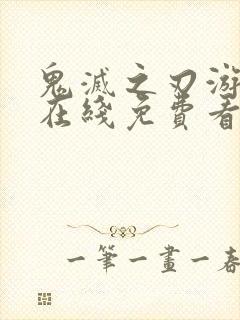 鬼滅之刃游
在綫免費看
一筆一畫一春